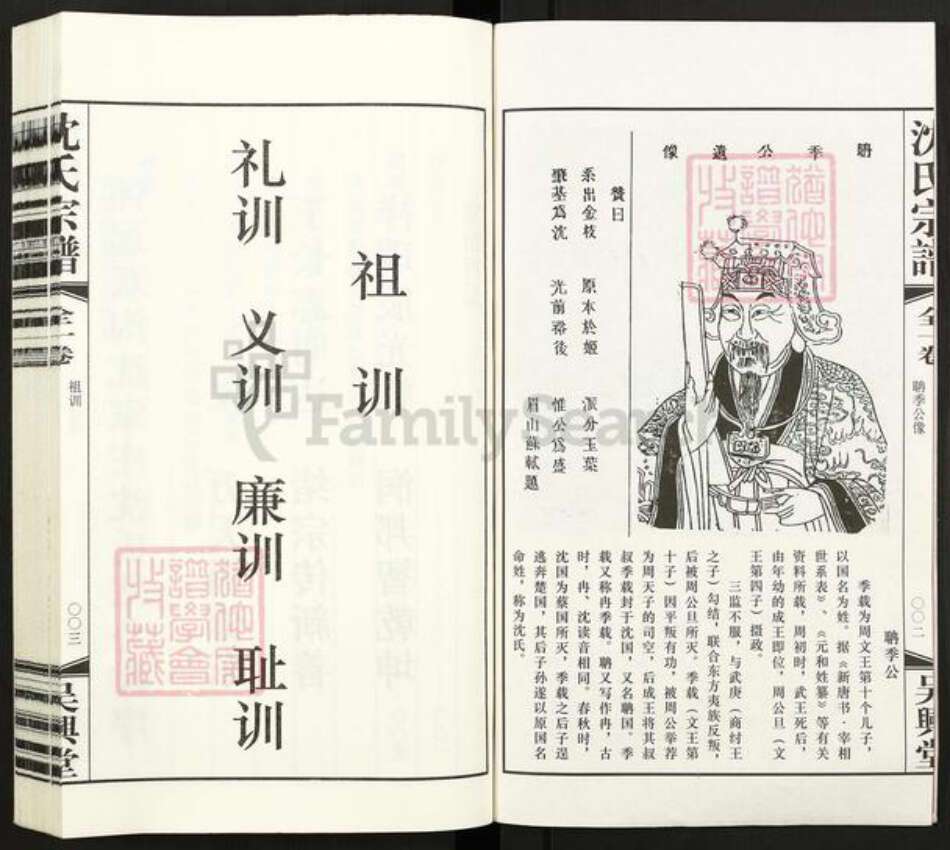 沈氏宗譜
全一卷
聃季公像
〇〇二
吴興堂
聃季公遺像
贊曰
系出金枝 原本於姬 派分玉葉
肇基爲沈 光前裕後 惟公爲盛
眉山蘇軾題
聃季公
季载为周文王第十个儿子，
以国名为姓。据《新唐书·宰相
世系表》、《元和姓纂》等有关
资料所载，周初时，武王死后，
由年幼的成王即位，周公旦（文
王第四子）摄政。
三监不服，与武庚（商纣王
之子）勾结，联合东方夷族反叛，
后被周公旦所灭。季载（文王第
十子）因平叛有功，被周公举荐
为周天子的司空，后成王将其叔
叔季载封于沈国，又名聃国。季
载又称冉季载。聃又写作冉，古
时，冉、沈读音相同。春秋时，
沈国为蔡国所灭，季载之后子逞
逃奔楚国，其后子孙遂以原国名
命姓，称为沈氏。
祖训
礼训 义训 廉训 耻训
沈氏宗譜
全一卷
祖训
〇〇三
吴興堂
譜學會
收藏
FamilySearch